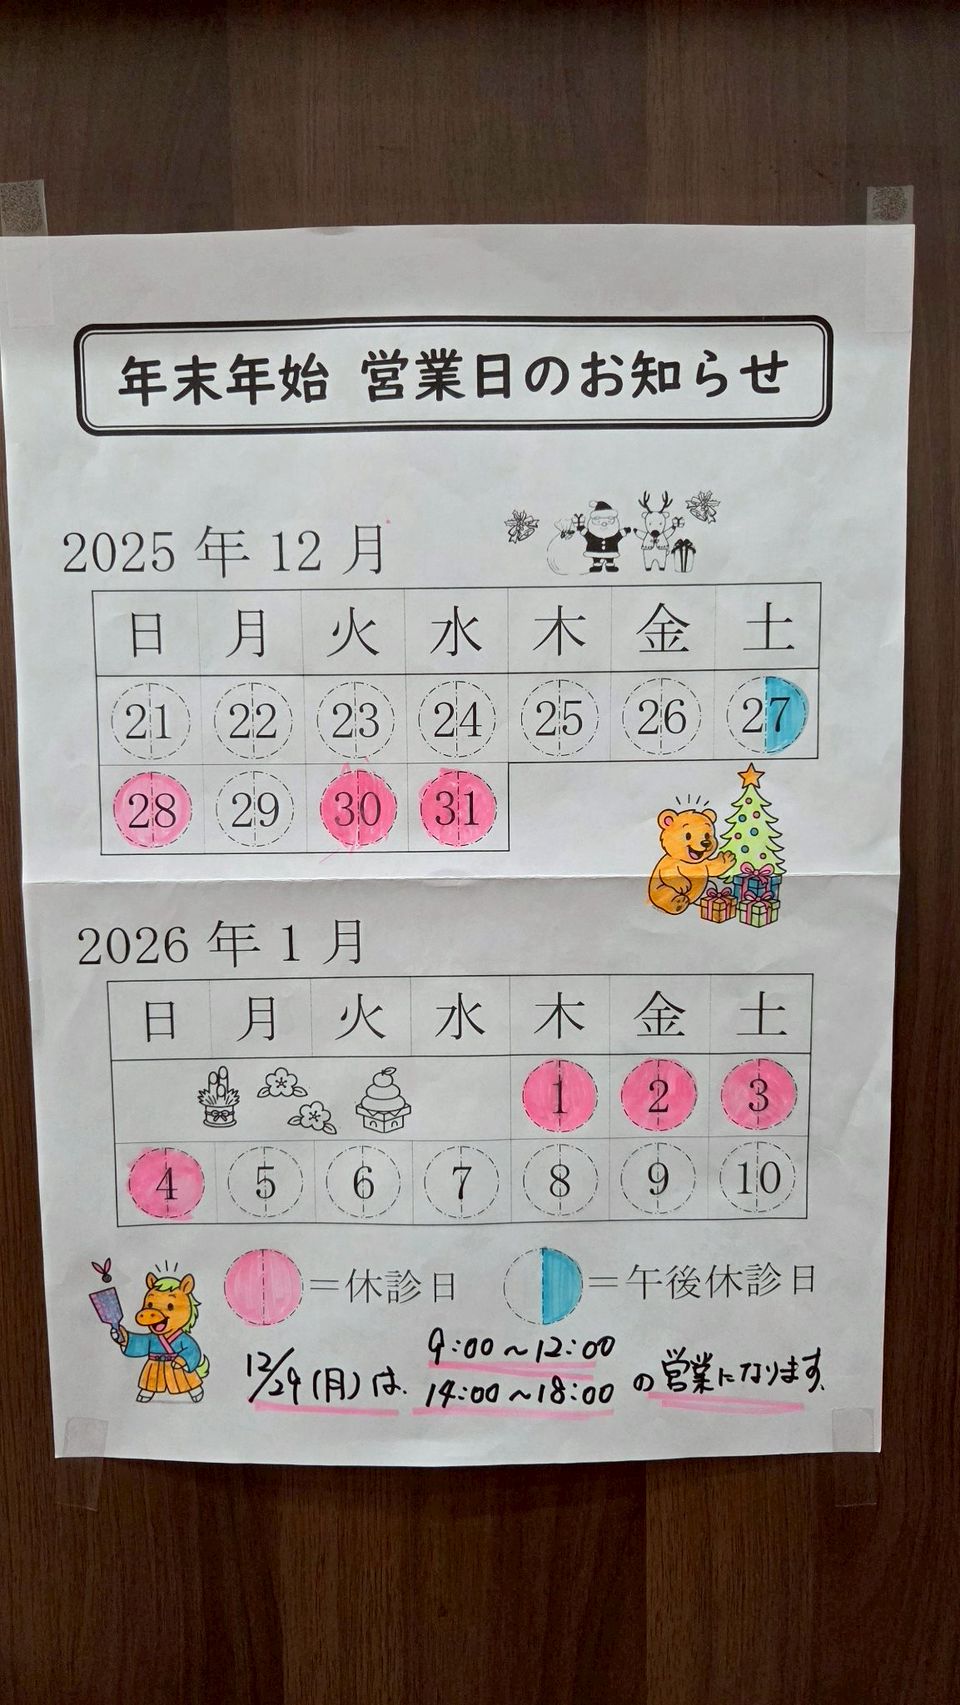 年末年始 営業日のお知らせ
2025年12月
日 月 火 水 木 金 土
21 22 23 24 25 26 27
28 29 30 31
2026年1月
日 月 火 水 木 金 土
1 2 3
4 5 6 7 8 9 10
=休診日 =午後休診日
12/29(月)は、9:00~12:00
14:00~18:00 の営業になります。